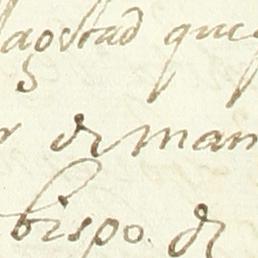 agestad que
de man
bispo. de